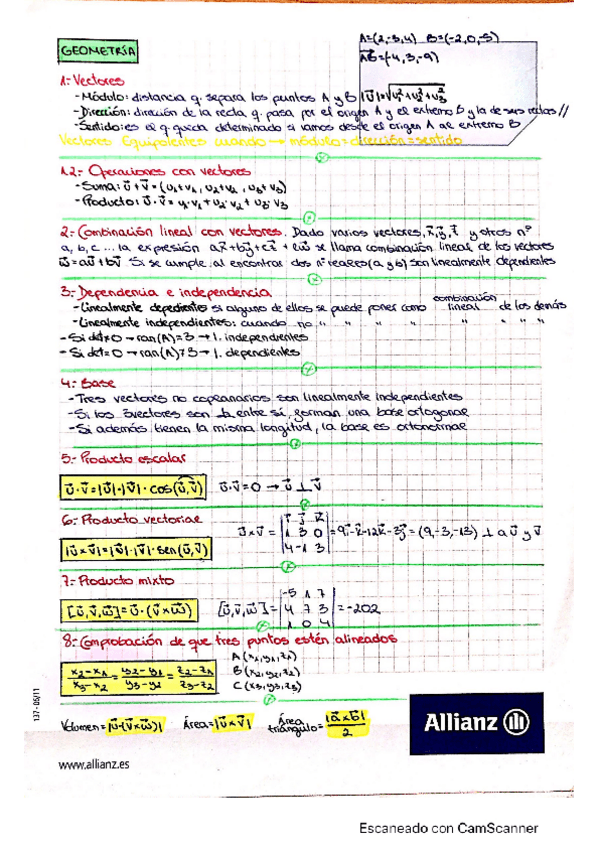 A=(2,-3,4) B=(-2,0,-5)
GEOMETRÍA
AB=(-4,3,-9)
1.- Vectores
- Módulo: distancia q. separa los puntos A y B |u|=√u₁²+u₂²+u₃²
- Dirección: dirección de la recta q. pasa por el origen A y el extremo B y la de sus rectas //
- Sentido: es el q queda determinado si vamos desde el origen A al extremo B
Vectores Equipolentes cuando → módulo = dirección = sentido
1.2.- Operaciones con vectores
- Suma: u+v = (u₁+v₁, u₂+v₂, u₃+v₃)
- Producto: u·v = u₁·v₁+u₂·v₂+u₃·v₃
2.- Combinación lineal con vectores. Dado varios vectores, x,y,z y otros nº
a, b, c ... la expresión ax+by+cz+ℓw se llama combinación lineal de los vectores
w=au+bv Si se cumple al encontrar dos nº reales (a y b) son linealmente dependientes
3.- Dependencia e independencia
- Linealmente dependientes si alguno de ellos se puede poner como combinación lineal de los demás
- Linealmente independientes: cuando no " " " " " " " " "
- Si det≠0 → ran(A)=3 → l. independientes
- Si det=0 → ran(A)≠3 → l. dependientes
4.- Base
- Tres vectores no coplanarios son linealmente independientes
- Si los 3 vectores son ⊥ entre sí, forman una base ortogonal
- Si además tienen la misma longitud, la base es ortonormal
5.- Producto escalar
u·v=|u|·|v|·cos(u,v) u·v=0 → u ⊥ v
6.- Producto vectorial
|u×v|=|u|·|v|·sen(u,v) u×v = |i j k| |1 3 0| |4 -1 3| = 9i-k-12k-3j = (9,-3,-13) ⊥ a u y v
7.- Producto mixto
[u,v,w]=u·(v×w) [u,v,w]= |-5 1 7| |4 7 3| |1 0 4| = -202
8.- Comprobación de que tres puntos estén alineados
x₂-x₁/x₃-x₂ = y₂-y₁/y₃-y₂ = z₂-z₁/z₃-z₂
A (x₁,y₁,z₁)
B (x₂,y₂,z₂)
C (x₃,y₃,z₃)
Volumen=|u·(v×w)| Área=|u×v| Área triángulo=|a×b|/2
137-05/11
Allianz
www.allianz.es
Escaneado con CamScanner